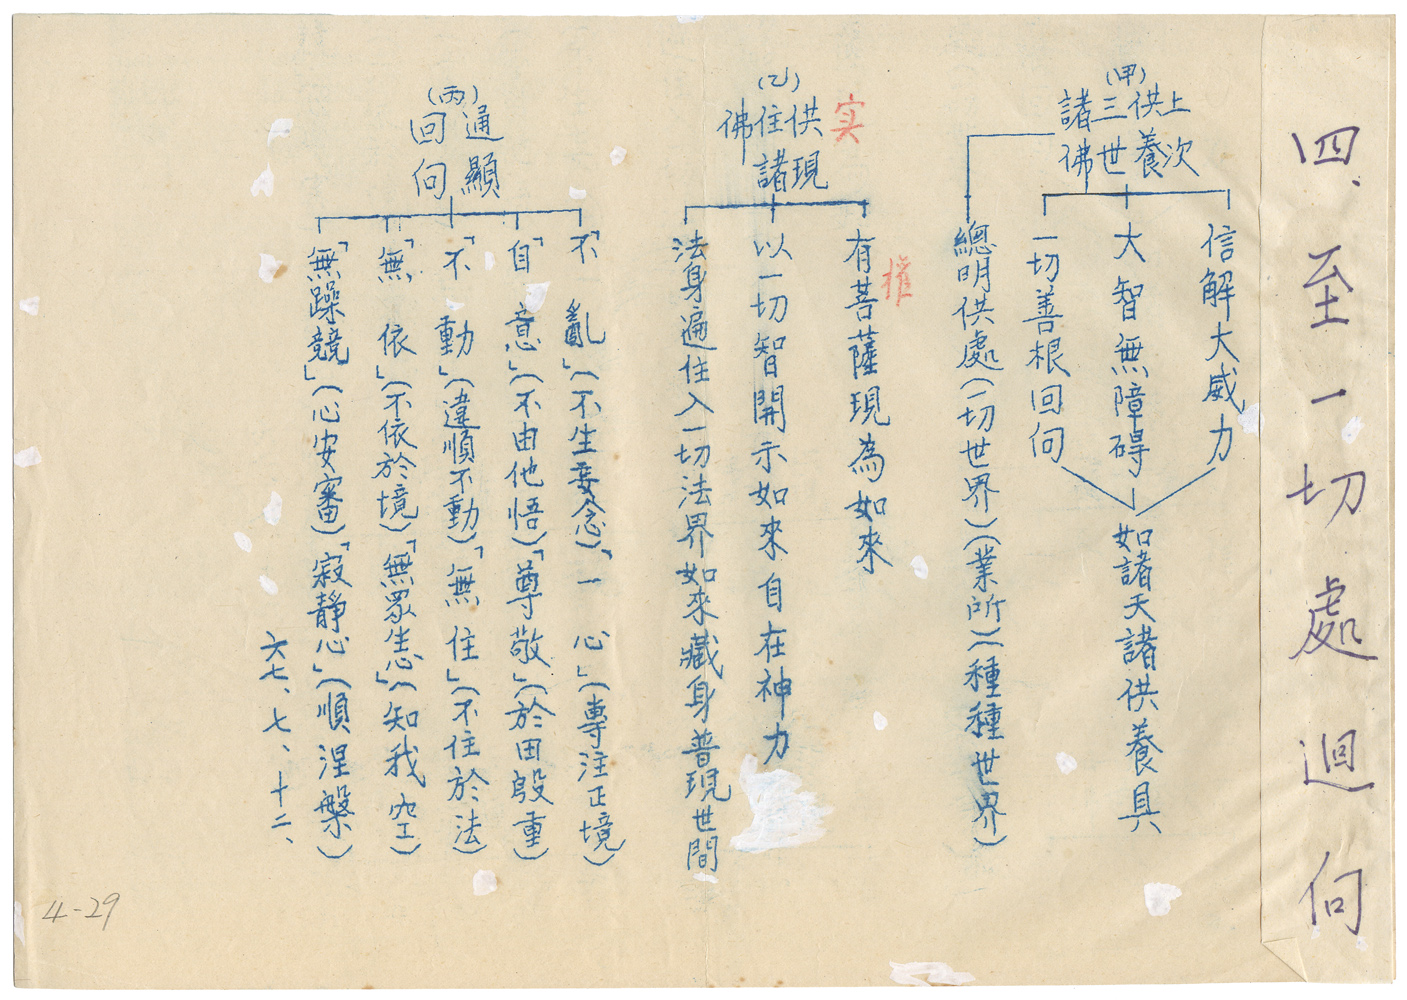 四、至一切處迴向
(甲)
上次
供養
三世
諸佛
信解大威力
大智無障碍
一切善根回向
如諸天諸供養具
總明供處(一切世界)(業所)(種種世界)
(乙)
实
供現
住諸
佛
权
有菩薩現為如來
以一切智開示如來自在神力
法身遍住入一切法界如來藏身普現世間
(丙)
通顯
回向
「不亂」(不生妄念)「一心」(專注正境)
「自意」(不由他悟)「尊敬」(於田殷重)
「不動」(違順不動)「無住」(不住於法)
「無依」(不依於境)「無眾生心」(知我空)
「無躁競」(心安審)「寂靜心」(順涅槃)
六七、七、十二、
4-29